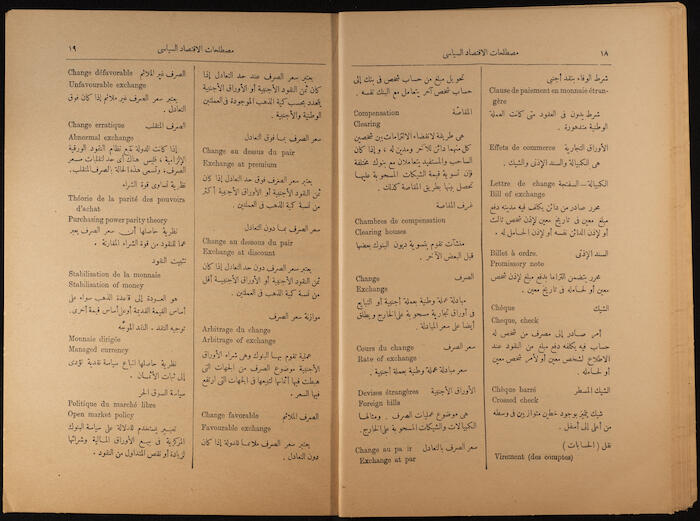 ١٨
مصطلحات الاقتصاد السياسى
شرط الوفاء بنقد أجنبى
Clause de paiement en monnaie étran-
gère
شرط يدون فى العقود متى كانت العملة
الوطنية متدهورة.
الأوراق التجارية
Effets de commerce
هى الكمبيالة والسند الإذنى والشيك.
الكمبيالة – السفتجة
Lettre de change
Bill of exchange
محرر صادر من دائن يكلف فيه مدينه دفع
مبلغ معين فى تاريخ معين لإذن شخص ثالث
أو لإذن الدائن نفسه أو لإذن الحامل له.
السند الإذنى
Billet à ordre.
Promissory note
محرر يتضمن التزاما بدفع مبلغ لإذن شخص
معين أو لحامله فى تاريخ معين.
الشيك
Chèque
Cheque, check
أمر صادر إلى مصرف من شخص له
حساب فيه يكلفه دفع مبلغ من النقود عند
الاطلاع لشخص معين أو لأمر شخص معين
أو لحامله.
الشيك المسطر
Chèque barré
Crossed check
شيك يتميز بوجود خطين متوازيين فى وسطه
من أعلى إلى أسفل.
نقل (الحسابات)
Virement (des comptes)
تحويل مبلغ من حساب شخص فى بنك إلى
حساب شخص آخر يتعامل مع البنك نفسه.
المقاصّة
Compensation
Clearing
هى طريقة لانقضاء الالتزامات بين شخصين
كل منهما دائن للآخر ومدين له، وإذا كان
الساحب والمستفيد يتعاملان مع بنوك مختلفة
فإن تسوية قيمة الشيكات المسحوبة عليها
تحصل بينها بطريق المقاصة كذلك.
غرف المقاصة
Chambres de compensation
Clearing houses
منشآت تقوم بتسوية ديون البنوك بعضها
قبل البعض الآخر.
الصرف
Change
Exchange
مبادلة عملة وطنية بعملة أجنبية أو التبايع
فى أوراق تجارية مسحوبة على الخارج ويطلق
أيضا على سعر المبادلة.
سعر الصرف
Cours du change
Rate of exchange
سعر مبادلة عملة وطنية بعملة أجنبية.
الأوراق الأجنبية
Devises étrangères
Foreign bills
هى موضوع عمليات الصرف. ومثالها
الكمبيالات والشيكات المسحوبة على الخارج.
سعر الصرف بالتعادل
Change au pair
Exchange at par
مصطلحات الاقتصاد السياسى
١٩
يعتبر سعر الصرف عند حد التعادل إذا
كان ثمن النقود الأجنبية أو الأوراق الأجنبية
يتحدد بحسب كمية الذهب الموجودة فى العملتين
الوطنية والأجنبية.
سعر الصرف بما فوق التعادل
Change au dessus du pair
Exchange at premium
يعتبر سعر الصرف فوق حد التعادل إذا كان
ثمن النقود الأجنبية أو الأوراق الأجنبية أكثر
من نسبة كمية الذهب فى العملتين.
سعر الصرف بما دون التعادل
Change au dessous du pair
Exchange at discount
يعتبر سعر الصرف دون حد التعادل إذا كان
ثمن النقود الأجنبية أو الأوراق الأجنبية أقل
من نسبة كمية الذهب فى العملتين.
موازنة سعر الصرف
Arbitrage du change
Arbitrage of exchange
عملية تقوم بها البنوك وهى شراء الأوراق
الأجنبية موضوع الصرف من الجهات التى
هبطت فيها أثمانها لتبيعها فى الجهات التى ارتفع
فيها السعر.
الصرف الملائم
Change favorable
Favourable exchange
يعتبر سعر الصرف ملائما للدولة إذا كان
دون التعادل.
الصرف غير الملائم
Change défavorable
Unfavourable exchange
يعتبر سعر الصرف غير ملائم إذا كان فوق
التعادل.
الصرف المتقلب
Change erratique
Abnormal exchange
إذا كانت الدولة تتبع نظام النقود الورقية
الإلزامية، فليس هناك أى حد لتقلبات سعر
الصرف، وتسمى هذه الحالة «الصرف المتقلب».
نظرية تساوى قوة الشراء
Théorie de la parité des pouvoirs
d'achat
Purchasing power parity theory
نظرية حاصلها أن سعر الصرف يعبر
عما للنقود من قوة الشراء المقارنة.
تثبيت النقود
Stabilisation de la monnaie
Stabilisation of money
هو العودة إلى قاعدة الذهب سواء على
أساس القيمة القديمة أو على أساس قيمة أخرى.
توجيه النقد. النقد الموجَّه
Monnaie dirigée
Managed currency
نظرية حاصلها اتباع سياسة نقدية تؤدى
إلى ثبات الأثمان.
سياسة السوق الحر
Politique du marché libre
Open market policy
تعبير يستخدم للدلالة على سياسة البنوك
المركزية فى بيع الأوراق المالية وشرائها
لزيادة أو نقص المتداول من النقود.